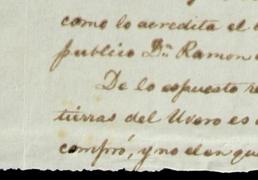 como lo acredita el
publico Dn Ramon
De lo espuesto re
tierras del Uvero es
compró, y no el en que